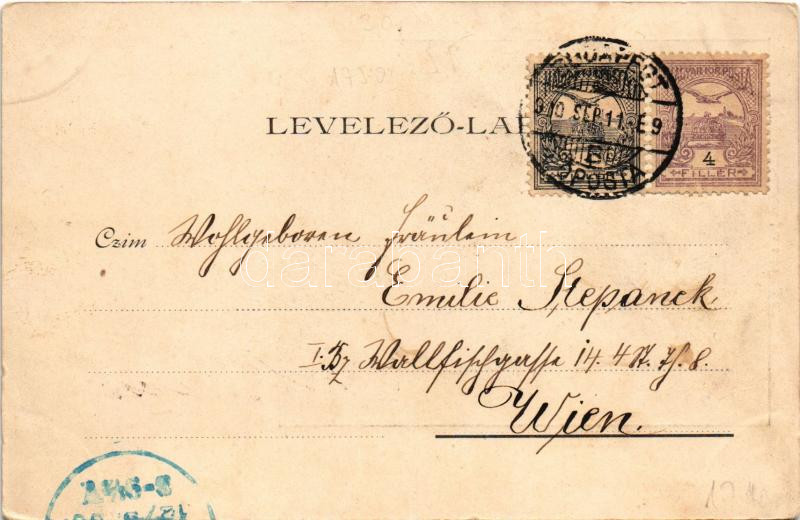 LEVELEZŐ-LA
BUDAPEST
SEP. 11. E 9
POSTA
MAGYAR KIR. POSTA
4
FILLÉR
Czim Wohlgeboren Fräulein
Emilie Stepanek
I. Bz Wallfischgasse 14. 4 St. Th. 8.
Wien.
darabanth